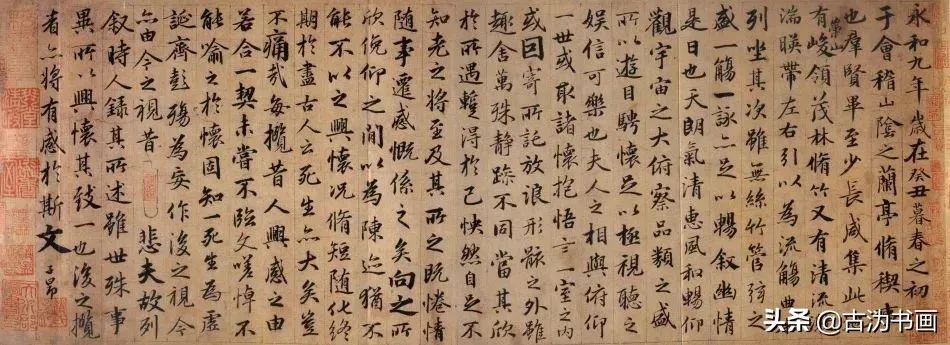 永和九年歲在癸丑暮春之初
于會稽山陰之蘭亭脩稧事
也羣賢畢至少長咸集此
有崇山峻領茂林脩竹又有清流
湍暎帶左右引以為流觴曲
列坐其次雖無絲竹管弦之
盛一觴一詠亦足以暢叙幽情
是日也天朗氣清惠風和暢仰
觀宇宙之大俯察品類之盛
所以遊目騁懷足以極視聽之
娛信可樂也夫人之相與俯仰
一世或取諸懷抱悟言一室之內
或因寄所託放浪形骸之外雖
趣舍萬殊静躁不同當其欣
於所遇蹔得於己怏然自足不
知老之將至及其所之既惓情
隨事遷感慨係之矣向之所
欣俛仰之間以為陳迹猶不
能不以之興懷況脩短隨化終
期於盡古人云死生亦大矣豈
不痛哉每攬昔人興感之由
若合一契未嘗不臨文嗟悼不
能喻之於懷固知一死生為虛
誕齊彭殤為妄作後之視今
亦由今之視昔悲夫故列
叙時人錄其所述雖世殊事
異所以興懷其致一也後之攬
者亦將有感於斯文 子昂
头条 @古沩书画